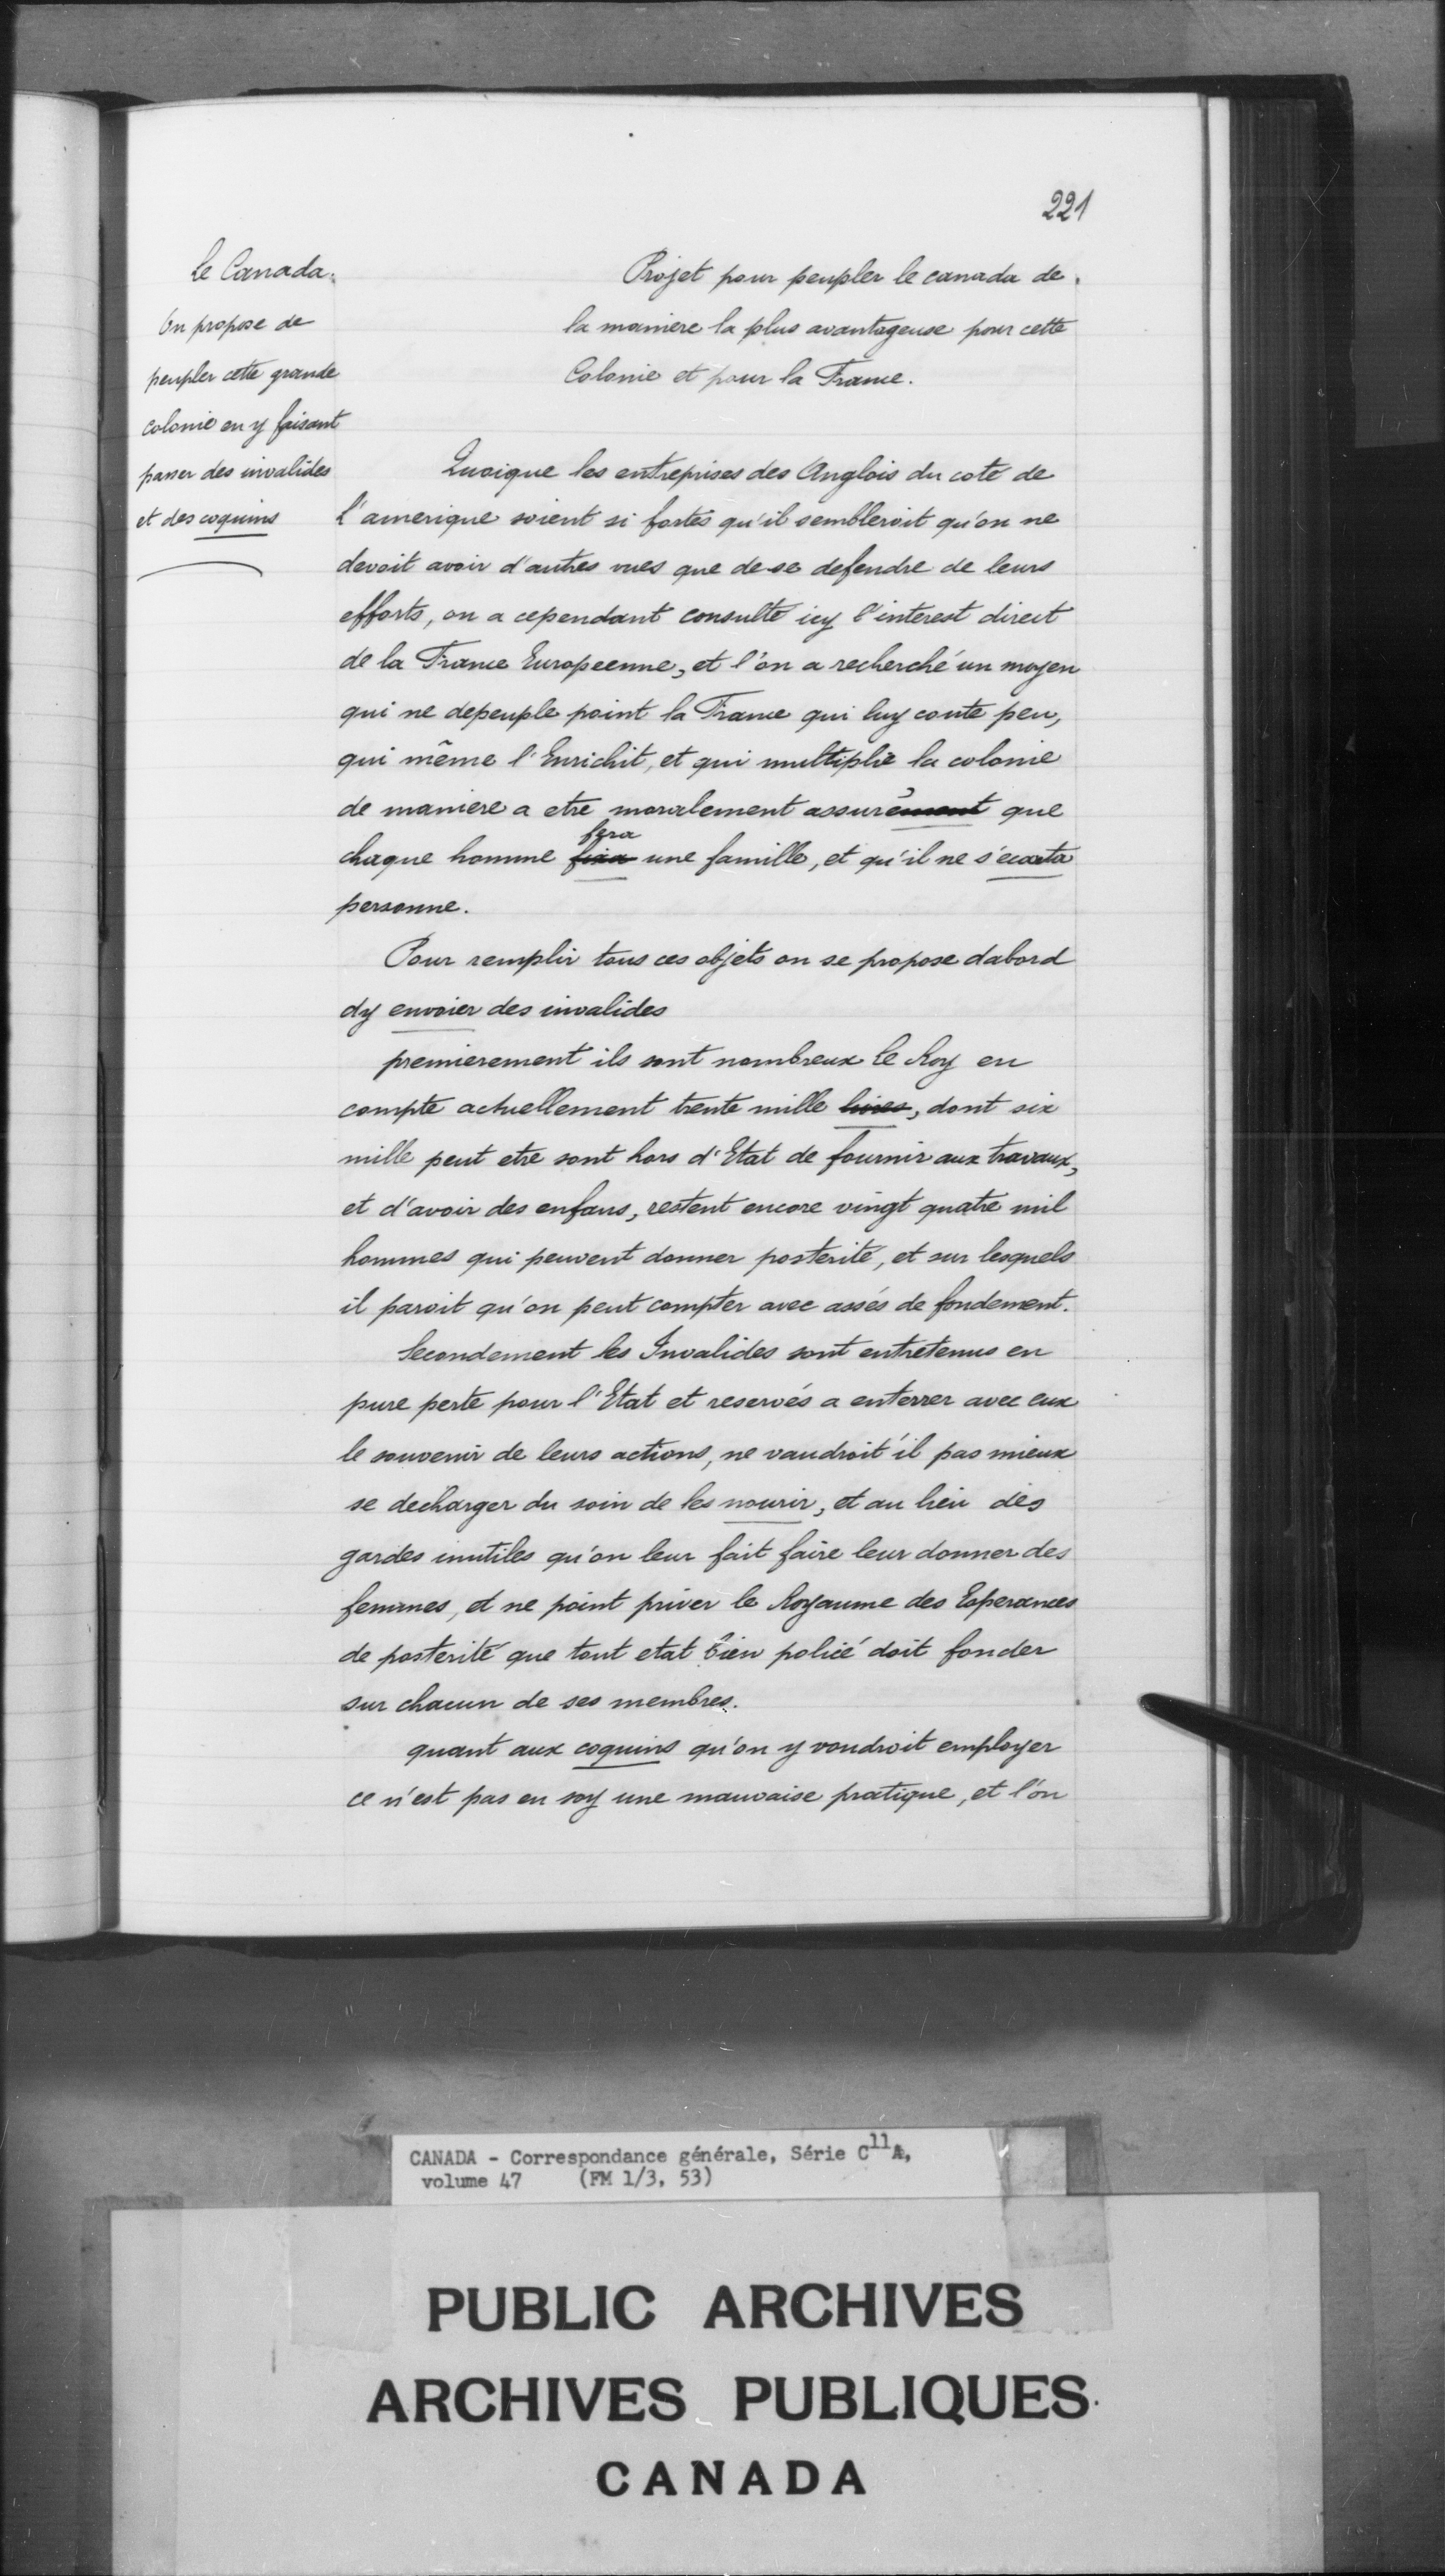 221
Le Canada.
On propose de
peupler cette grande
colonie en y faisant
passer des invalides
et des coquins
Projet pour peupler le canada de
la maniere la plus avantageuse pour cette
Colonie et pour la France.
Quoique les entreprises des Anglois du coté de
l'amerique soient si fortes qu'il sembleroit qu'on ne
devoit avoir d'autres vues que de se defendre de leurs
efforts, on a cependant consulté icy l'interest direct
de la France Europeenne, et l'on a recherché un moyen
qui ne depeuple point la France qui luy coute peu,
qui même l'Enrichit, et qui multiplie la colonie
de maniere a etre moralement assurément que
chaque homme fixa fera une famille, et qu'il ne s'ecarta
personne.
Pour remplir tous ces objets on se propose dabord
dy envoier des invalides
premierement ils sont nombreux le Roy en
compte actuellement trente mille , dont six
mille peut etre sont hors d'Etat de fournir aux travaux,
et d'avoir des enfans, restent encore vingt quatre mil
hommes qui peuvent donner posterité, et sur lesquels
il paroit qu'on peut compter avec assés de fondement.
Secondement les Invalides sont entretenus en
pure perte pour l'Etat et reservés a enterrer avec eux
le souvenir de leurs actions, ne vaudroit il pas mieux
se decharger du soin de les nourir, et au lieu des
gardes inutiles qu'on leur fait faire leur donner des
femmes, et ne point priver le Royaume des Esperances
de posterité que tout etat bien policé doit fonder
sur chacun de ses membres.
quant aux coquins qu'on y voudroit employer
ce n'est pas en soy une mauvaise pratique, et l'on
CANADA - Correspondance générale, Série C11A,
volume 47 (FM 1/3, 53)
PUBLIC ARCHIVES
ARCHIVES PUBLIQUES
CANADA